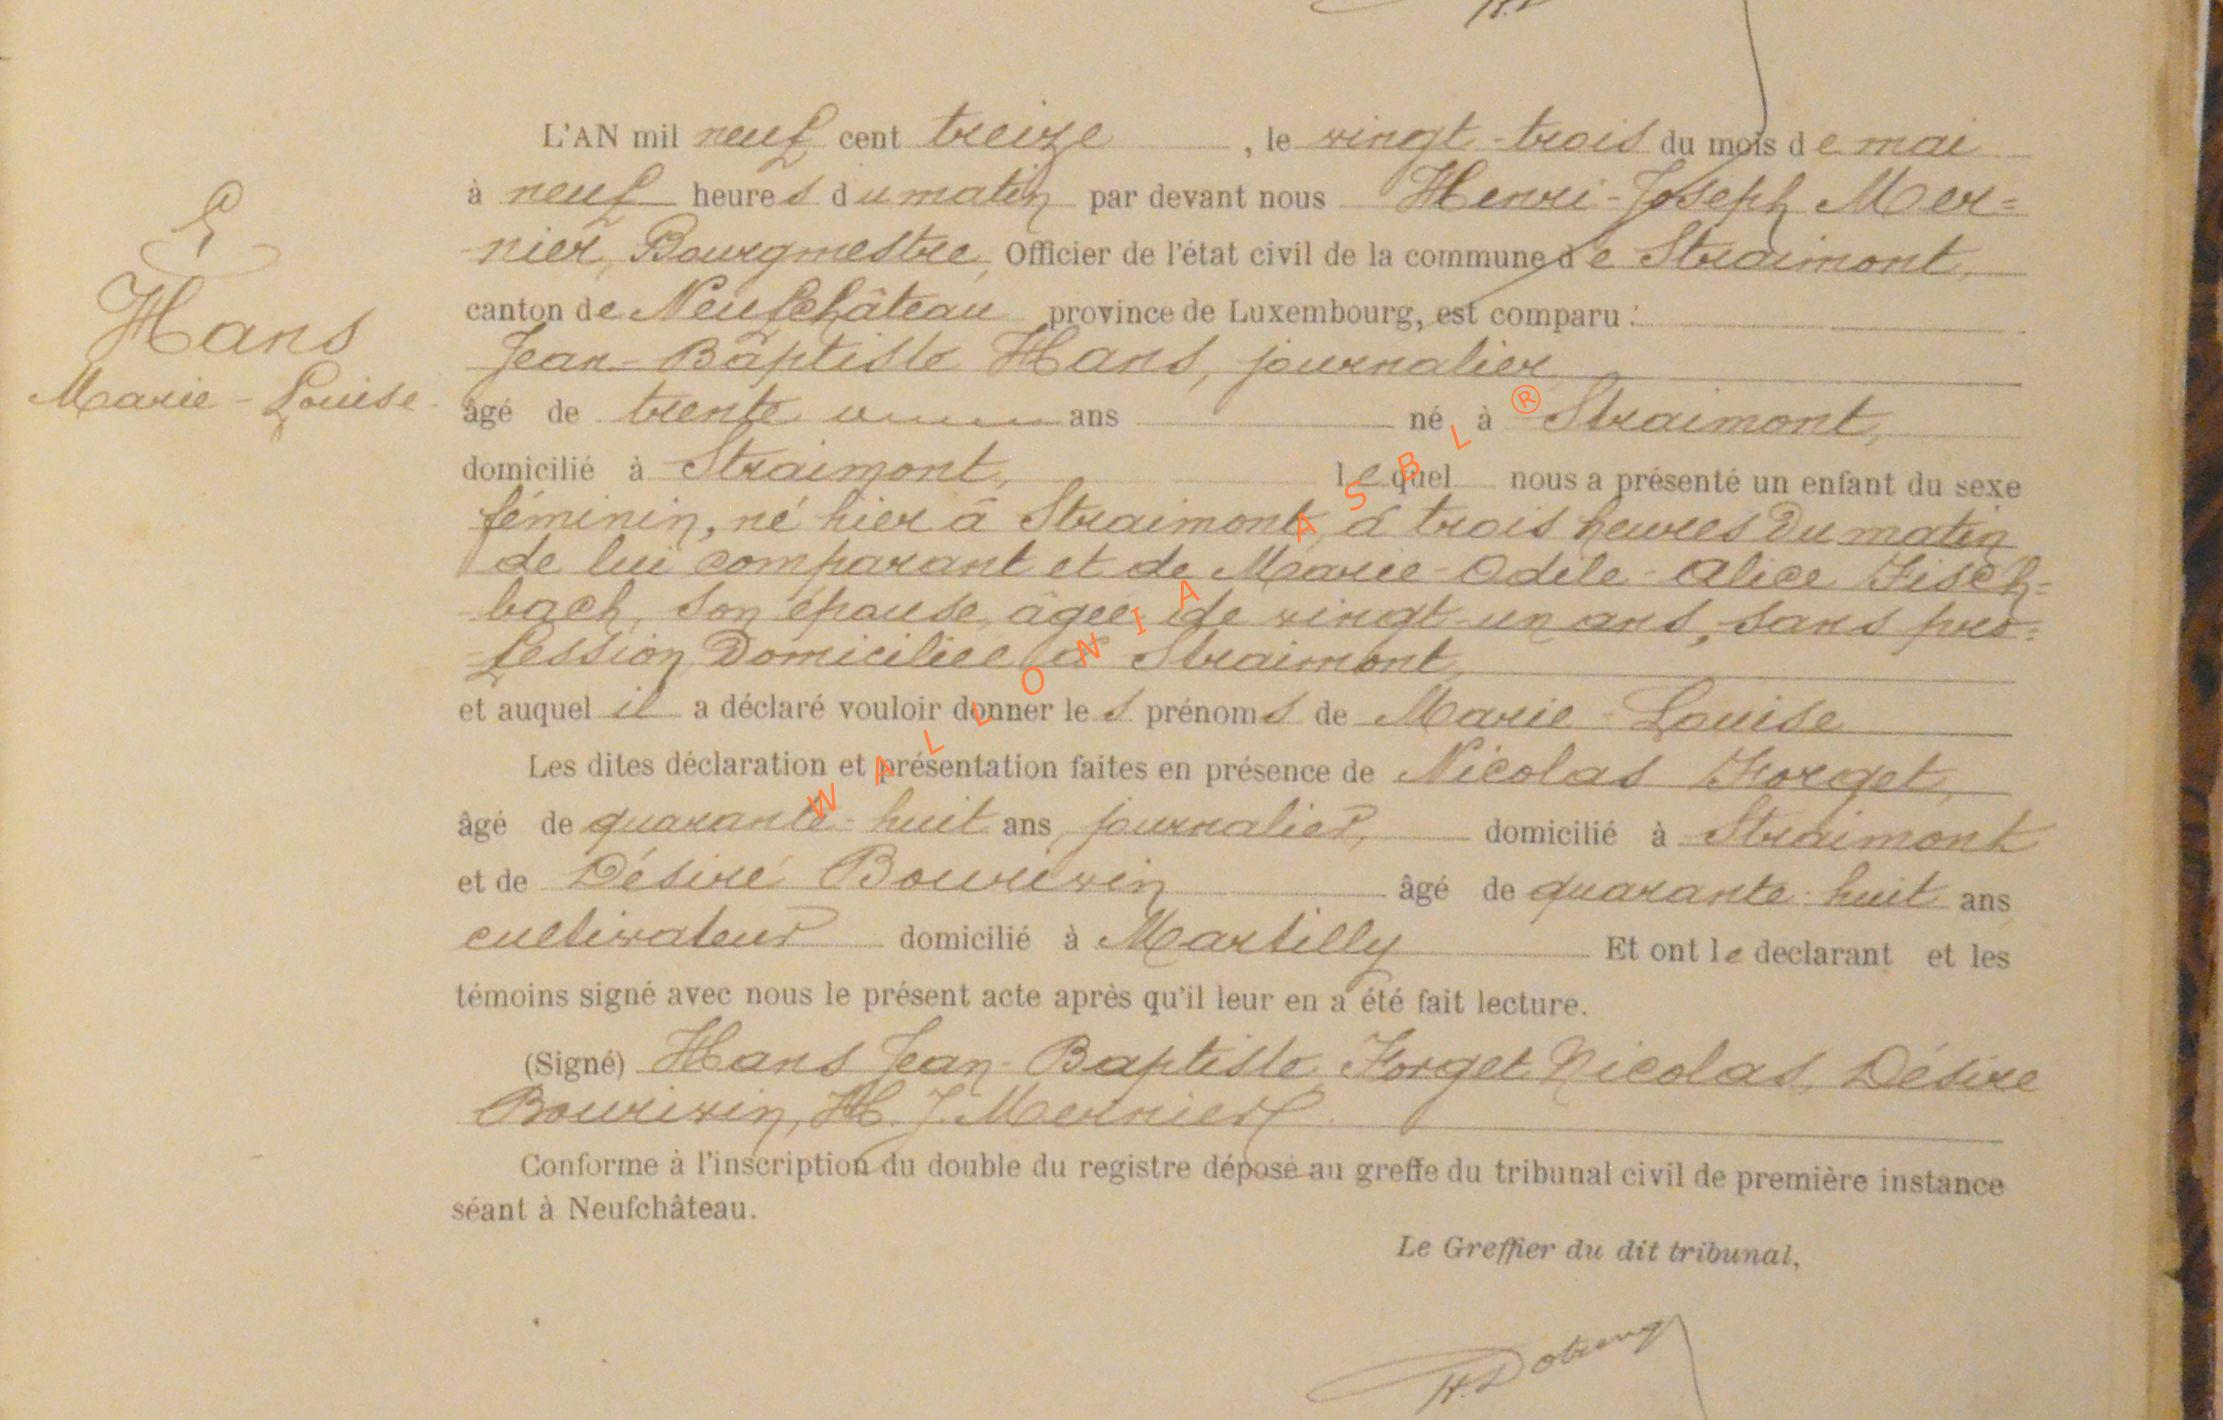 L'AN mil neuf cent treize, le vingt-trois du mois de mai
à neuf heures du matin par devant nous Henri-Joseph Mer=
nier, Bourgmestre, Officier de l'état civil de la commune de Straimont,
canton de Neufchâteau province de Luxembourg, est comparu :
Jean-Baptiste Hans, journalier
âgé de trente un ans né à Straimont,
domicilié à Straimont, lequel nous a présenté un enfant du sexe
féminin, né hier à Straimont, à trois heures Du matin
de lui comparant et de Marie-Odile-Alice Fisch=
bach, son épouse, âgée de vingt-un ans, sans pro=
fession, Domiciliée à Straimont,
et auquel il a déclaré vouloir donner les prénoms de Marie-Louise
Les dites déclaration et présentation faites en présence de Nicolas Forget,
âgé de quarante-huit ans, journalier, domicilié à Straimont
et de Désiré Bourivin âgé de quarante-huit ans
cultivateur domicilié à Martilly Et ont le declarant et les
témoins signé avec nous le présent acte après qu'il leur en a été fait lecture.
(Signé) Hans Jean-Baptiste, Forget Nicolas, Désire
Bourivin, H. J. Mernier.
Conforme à l'inscription du double du registre déposé au greffe du tribunal civil de première instance
séant à Neufchâteau.
Le Greffier du dit tribunal,
Hans
Marie-Louise
WALLONIA ASBL ®